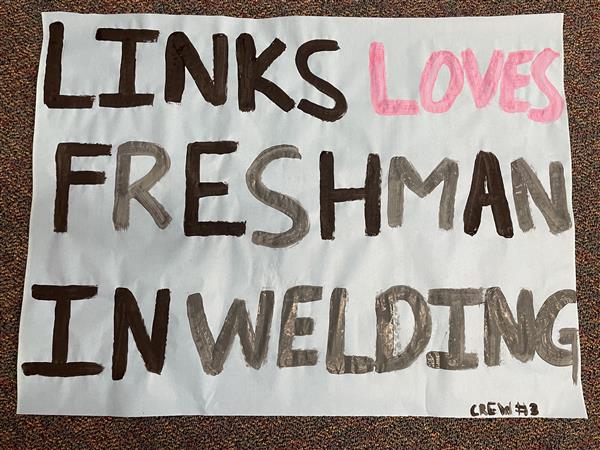 LINKS LOVES
FRESHMAN
IN WELDING
CREW #3